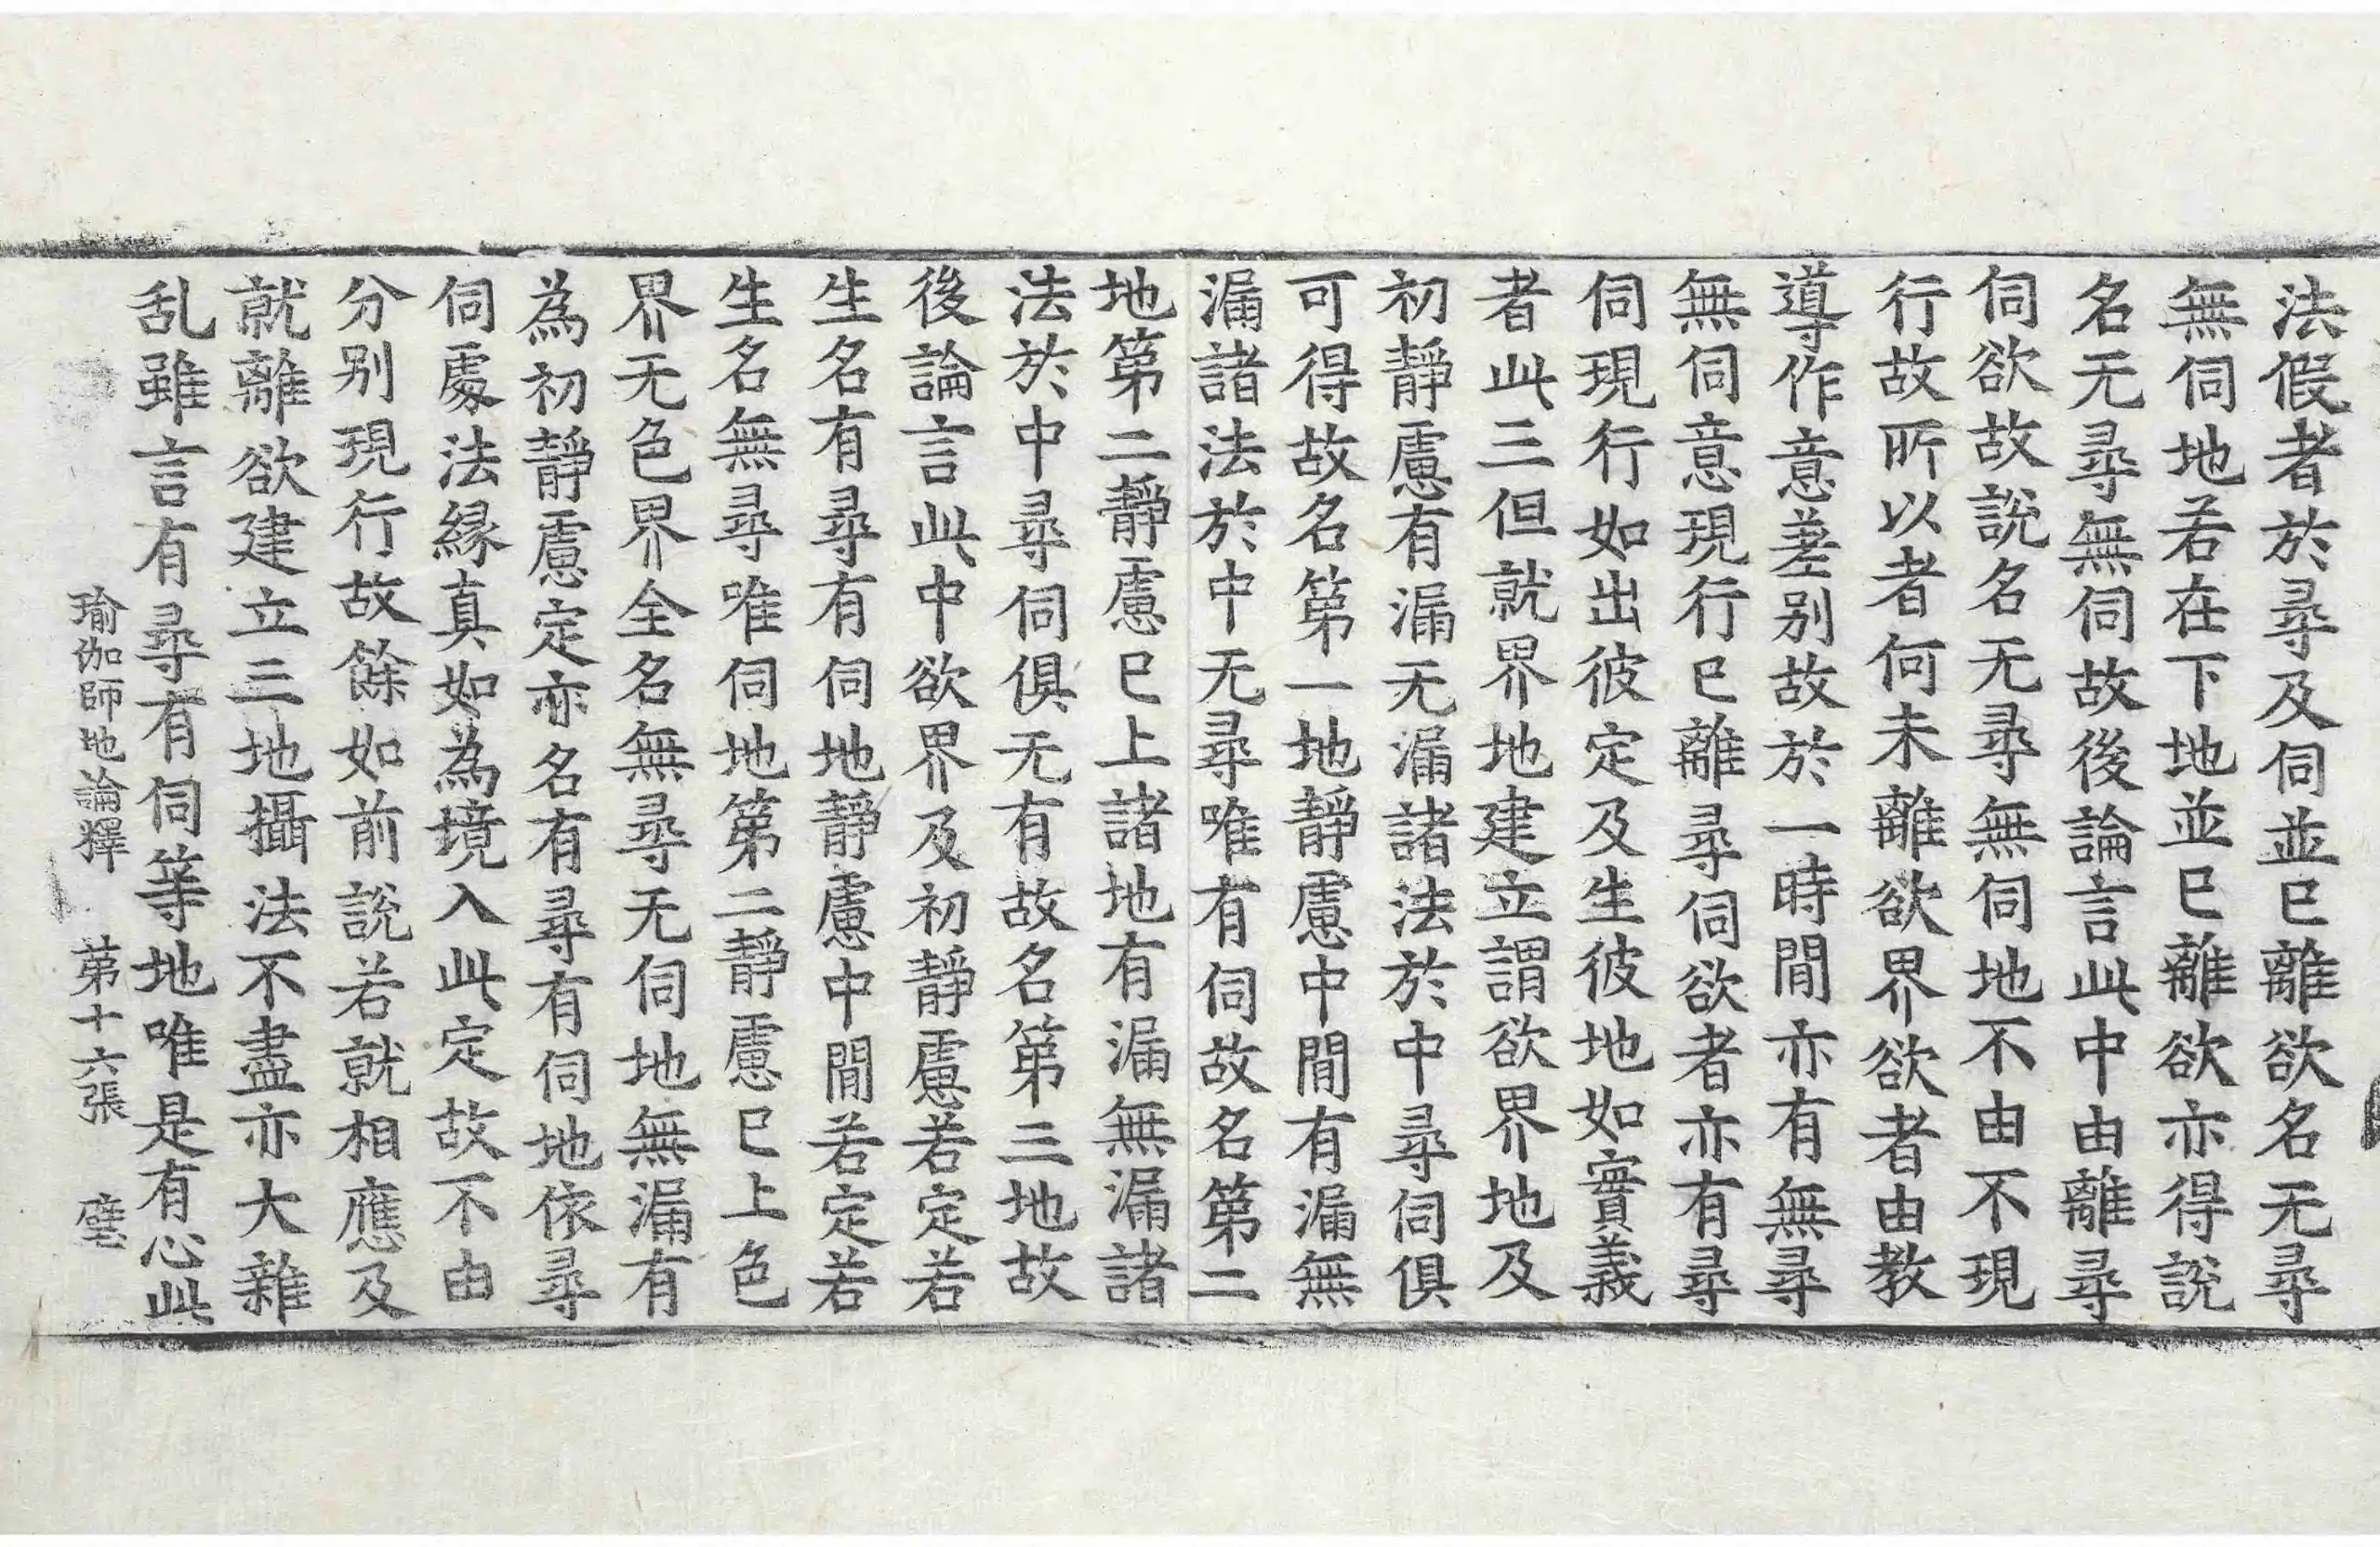 法假者於尋及伺並已離欲名无尋
無伺地若在下地並已離欲亦得說
名无尋無伺故後論言此中由離尋
伺欲故說名无尋無伺地不由不現
行故所以者何未離欲界欲者由教
導作意差别故於一時間亦有無尋
無伺意現行已離尋伺欲者亦有尋
伺現行如出彼定及生彼地如實義
者此三但就界地建立謂欲界地及
初靜慮有漏无漏諸法於中尋伺俱
可得故名第一地靜慮中間有漏無
漏諸法於中无尋唯有伺故名第二
地第二靜慮已上諸地有漏無漏諸
法於中尋伺俱无有故名第三地故
後論言此中欲界及初靜慮若定若
生名有尋有伺地靜慮中間若定若
生名無尋唯伺地第二靜慮已上色
界无色界全名無尋无伺地無漏有
為初靜慮定亦名有尋有伺地依尋
伺處法緣真如為境入此定故不由
分别現行故餘如前說若就相應及
就離欲建立三地攝法不盡亦大雜
乱雖言有尋有伺等地唯是有心此
瑜伽師地論釋 第十六張 壁